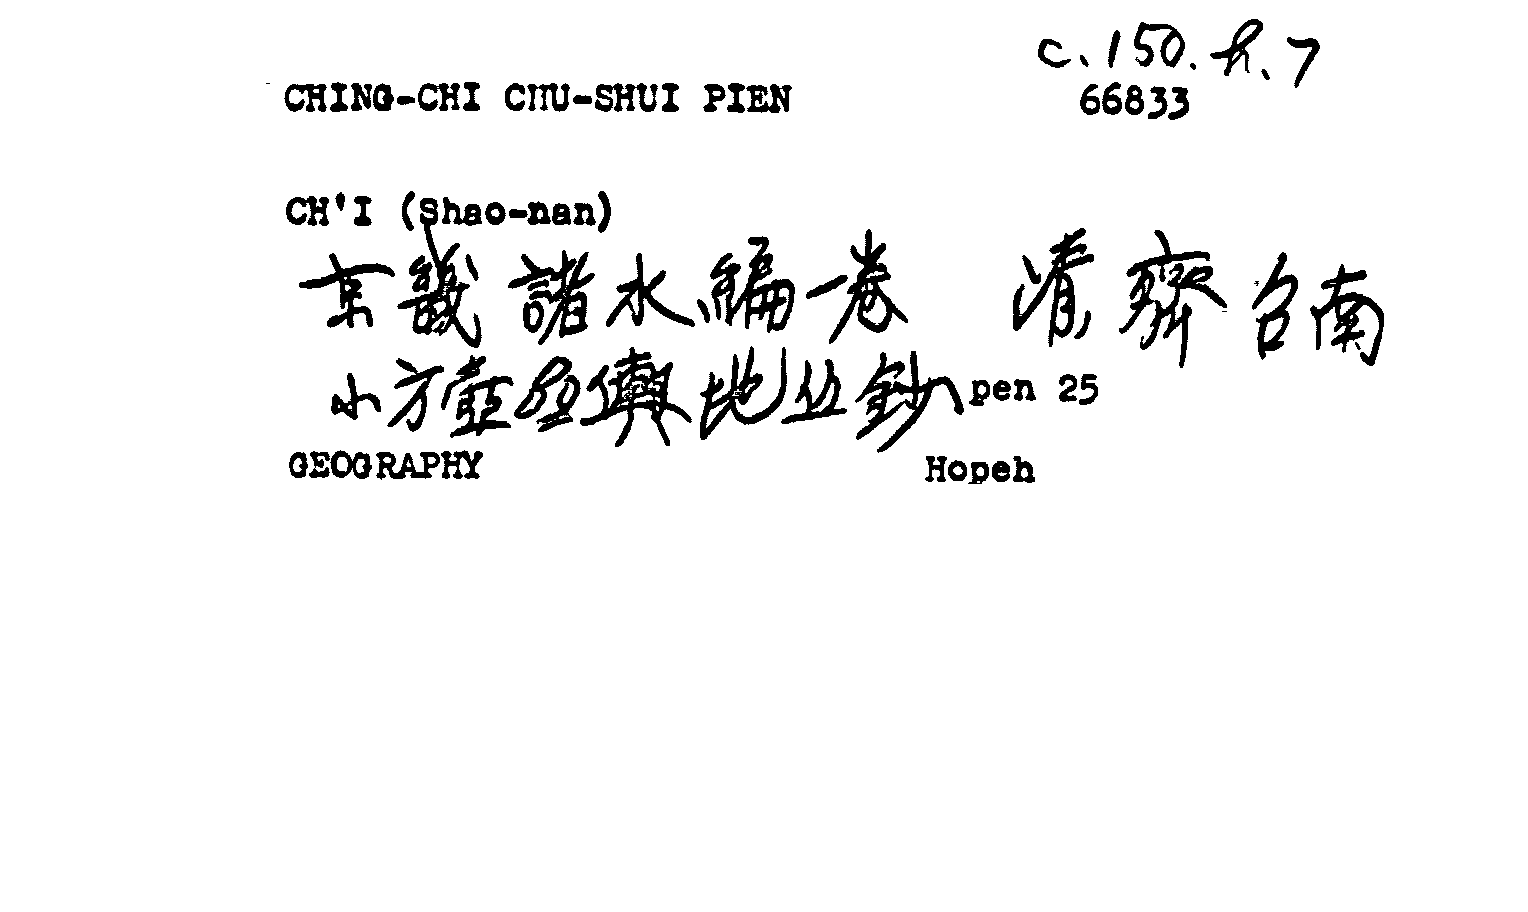 c.150.h.7
CHING-CHI CHU-SHUI PIEN 66833
CH'I (Shao-nan)
京畿諸水編一卷 清齊召南
小方壺齋輿地丛鈔 pen 25
GEOGRAPHY Hopeh